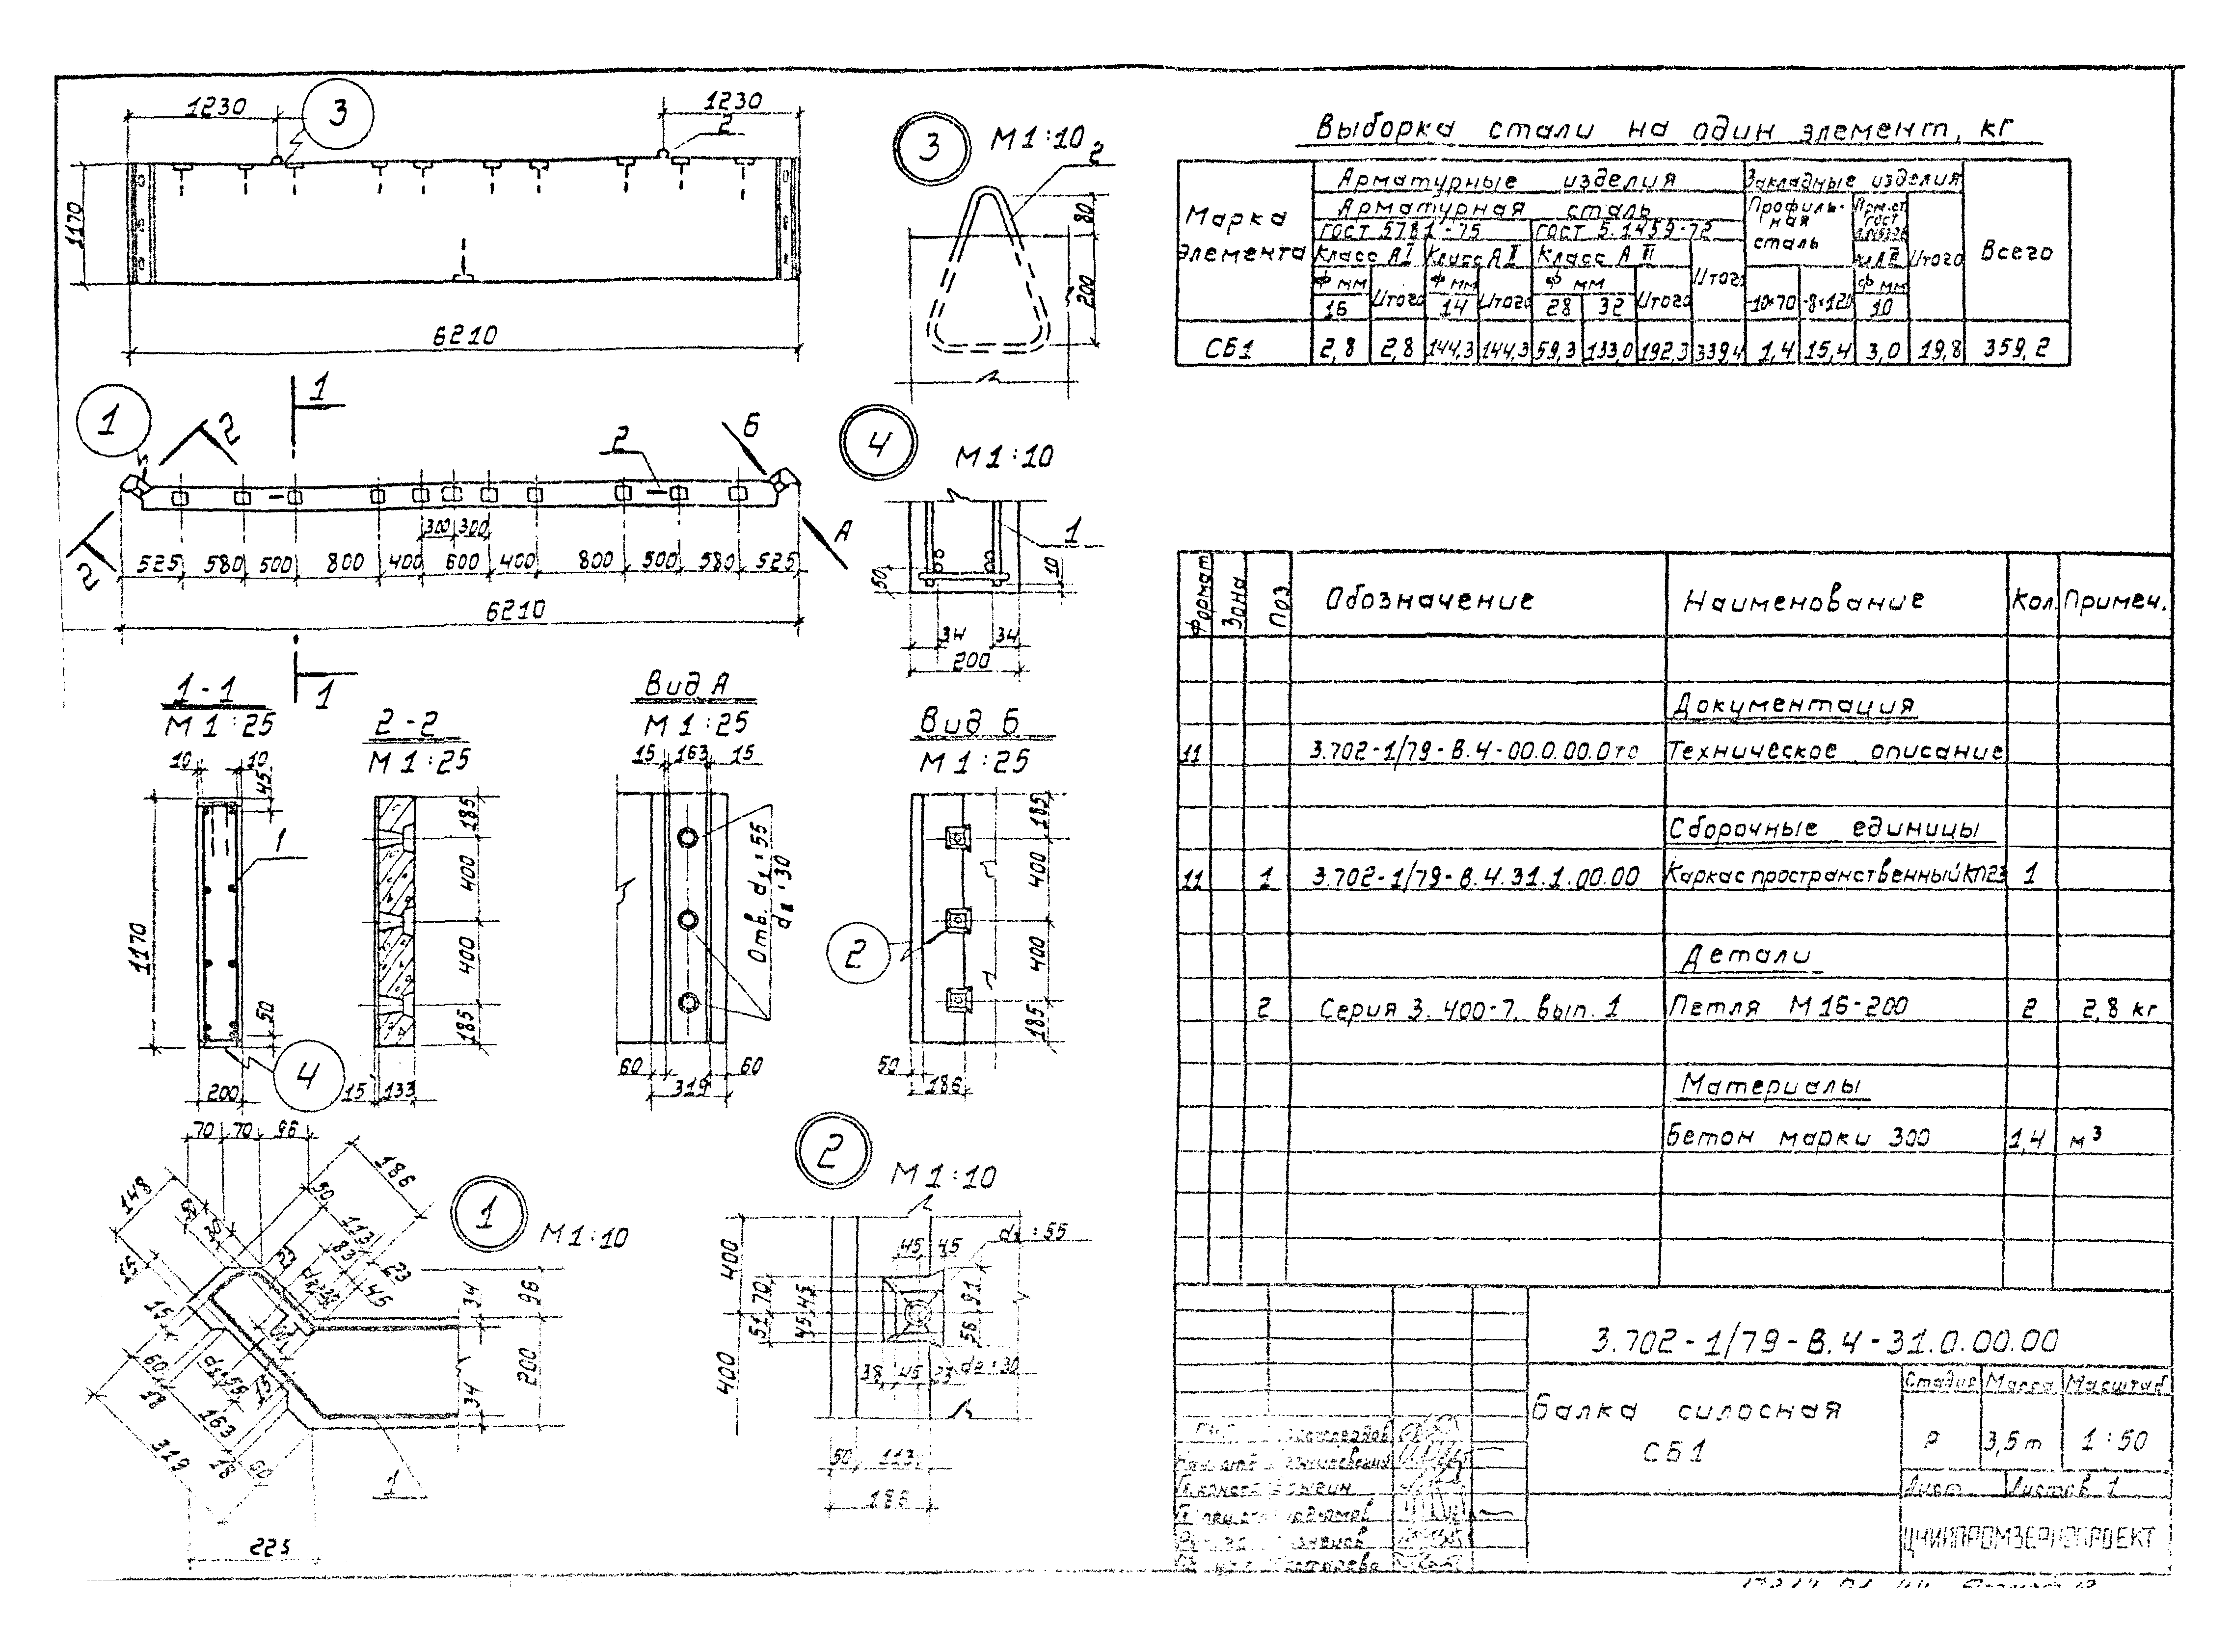 1230
3
1230
2
1170
6210
1
1
2
2
Б
А
2
300 300
525 580 500 800 400 600 400 800 500 580 525
6210
1
3
М 1:10
2
80
200
4
М 1:10
1
50
10
34 34
200
1-1
М 1:25
10 10
45
1170
1
50
4
200
2-2
М 1:25
185
400
400
185
15 133
Вид А
М 1:25
15 163 15
Отв. d1 = 55
d2 = 30
60 60
319
Вид Б
М 1:25
185
400
400
185
2
50
186
1
М 1:10
70 70 96
148
186
50
113
83
23
45
15
34
96
200
34
60
18
163
18
60
319
225
1
2
М 1:10
400
400
51 70
45 45
45 45
d1 = 55
91
56
38 45 23
d2 = 30
50 113
186
Выборка стали на один элемент, кг
Марка элемента
Арматурные изделия
Закладные изделия
Всего
Арматурная сталь
Профильная сталь
ГОСТ 5781-75
ГОСТ 5.1459-72
Класс АI
Класс АII
Класс АIII
Итого
Итого
Ф мм
Итого
Ф мм
Итого
Ф мм
Итого
Ф мм
16 14 28 32 -10×70 -8×120 10
СБ1 2,8 2,8 144,3 144,3 59,3 133,0 192,3 339,4 1,4 15,4 3,0 19,8 359,2
Формат Зона Поз. Обозначение Наименование Кол. Примеч.
Документация
11 3.702-1/79-В.4-00.0.00.0то Техническое описание
Сборочные единицы
11 1 3.702-1/79-В.4.31.1.00.00 Каркас пространственный КП23 1
Детали
2 Серия 3.400-7. вып. 1 Петля М16-200 2 2,8 кг
Материалы
Бетон марки 300 1,4 м³
3.702-1/79-В.4-31.0.00.00
Балка силосная
СБ1
Стадия Масса Масштаб
Р 3,5т 1:50
Лист Листов 1
ЦНИИПРОМЗЕРНОПРОЕКТ